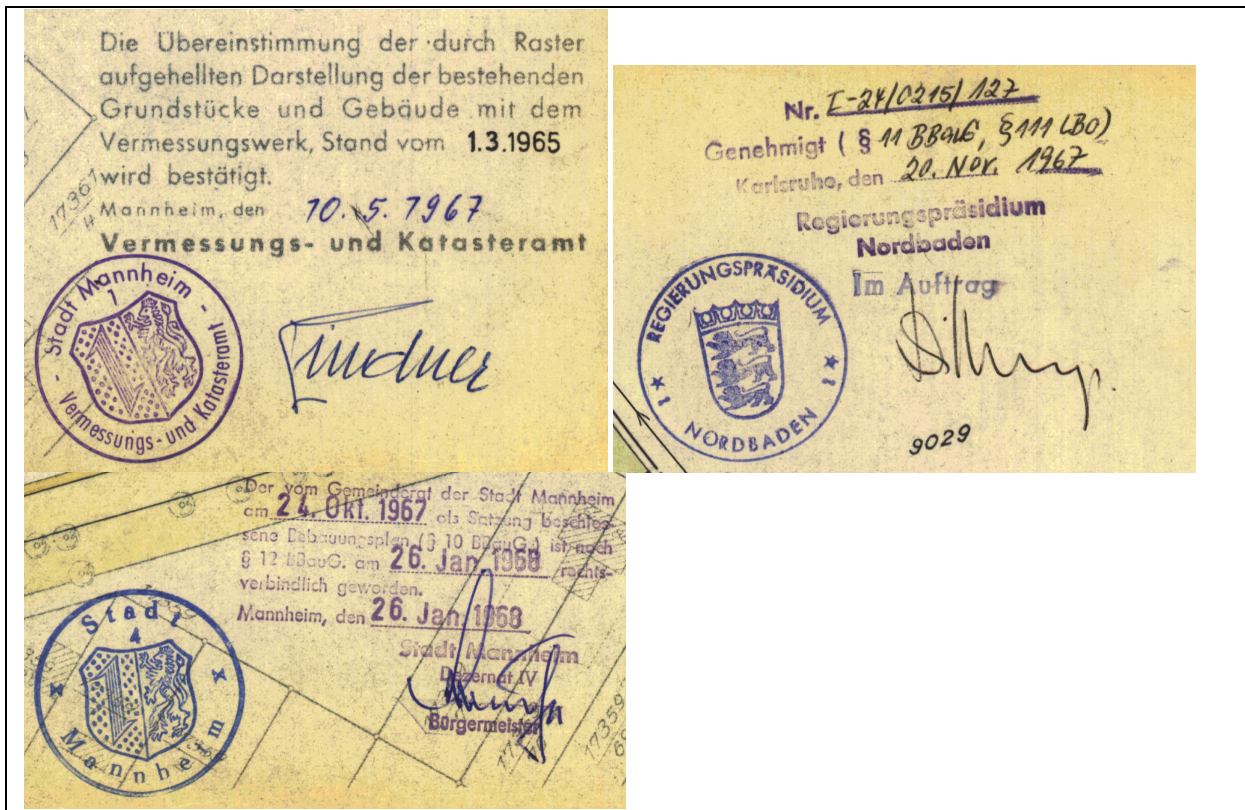 Die Übereinstimmung der durch Raster
aufgehellten Darstellung der bestehenden
Grundstücke und Gebäude mit dem
Vermessungswerk, Stand vom 1.3.1965
wird bestätigt.
Mannheim, den 10.5.1967
Vermessungs- und Katasteramt
- Stadt Mannheim -
1
Vermessungs- und Katasteramt
Lindner
17361
Nr. I-24/0215/127
Genehmigt ( § 11 BBauG, § 111 LBO)
Karlsruhe, den 20. Nov. 1967
Regierungspräsidium
Nordbaden
Im Auftrag
REGIERUNGSPRÄSIDIUM
* 1 NORDBADEN * 1
9029
Der vom Gemeinderat der Stadt Mannheim
am 24. Okt. 1967 als Satzung beschlos-
sene Bebauungsplan (§ 10 BBauG.) ist nach
§ 12 BBauG. am 26. Jan. 1968 rechts-
verbindlich geworden.
Mannheim, den 26. Jan. 1968
Stadt Mannheim
Dezernat IV
Bürgermeister
Stadt
4
x x
Mannheim
17359